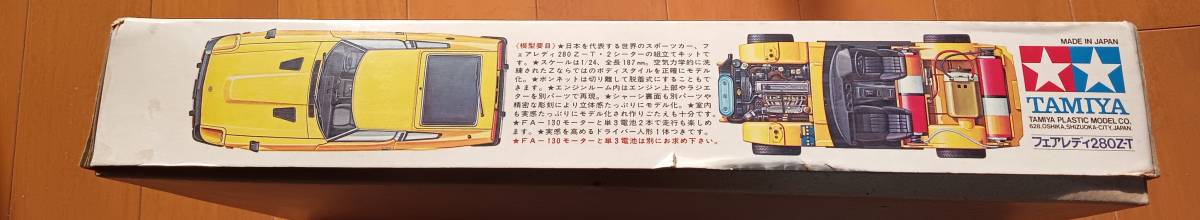 〈模型要目〉★日本を代表する世界のスポーツカー、フ
ェアレディ280Z－T・2シーターの組立てキットで
す。★スケールは1/24、全長187mm。空気力学的に洗
練されたZならではのボディスタイルを正確にモデル
化。★ボンネットは切り離して脱着式にすることもで
きます。★エンジンルーム内はエンジン上部やラジエ
ターを別パーツで再現。★シャーシ裏面も別パーツや
精密な彫刻により立体感たっぷりにモデル化。★室内
も実感たっぷりにモデル化され作りごたえも十分です。
★FA－130モーターと単3電池2本で走行も楽しめ
ます。★実感を高めるドライバー人形1体つきです。
★FA－130モーターと単3電池は別にお求め下さい。
MADE IN JAPAN
TAMIYA
TAMIYA PLASTIC MODEL CO.
628, OSHIKA, SHIZUOKA-CITY, JAPAN.
フェアレディ280Z-T